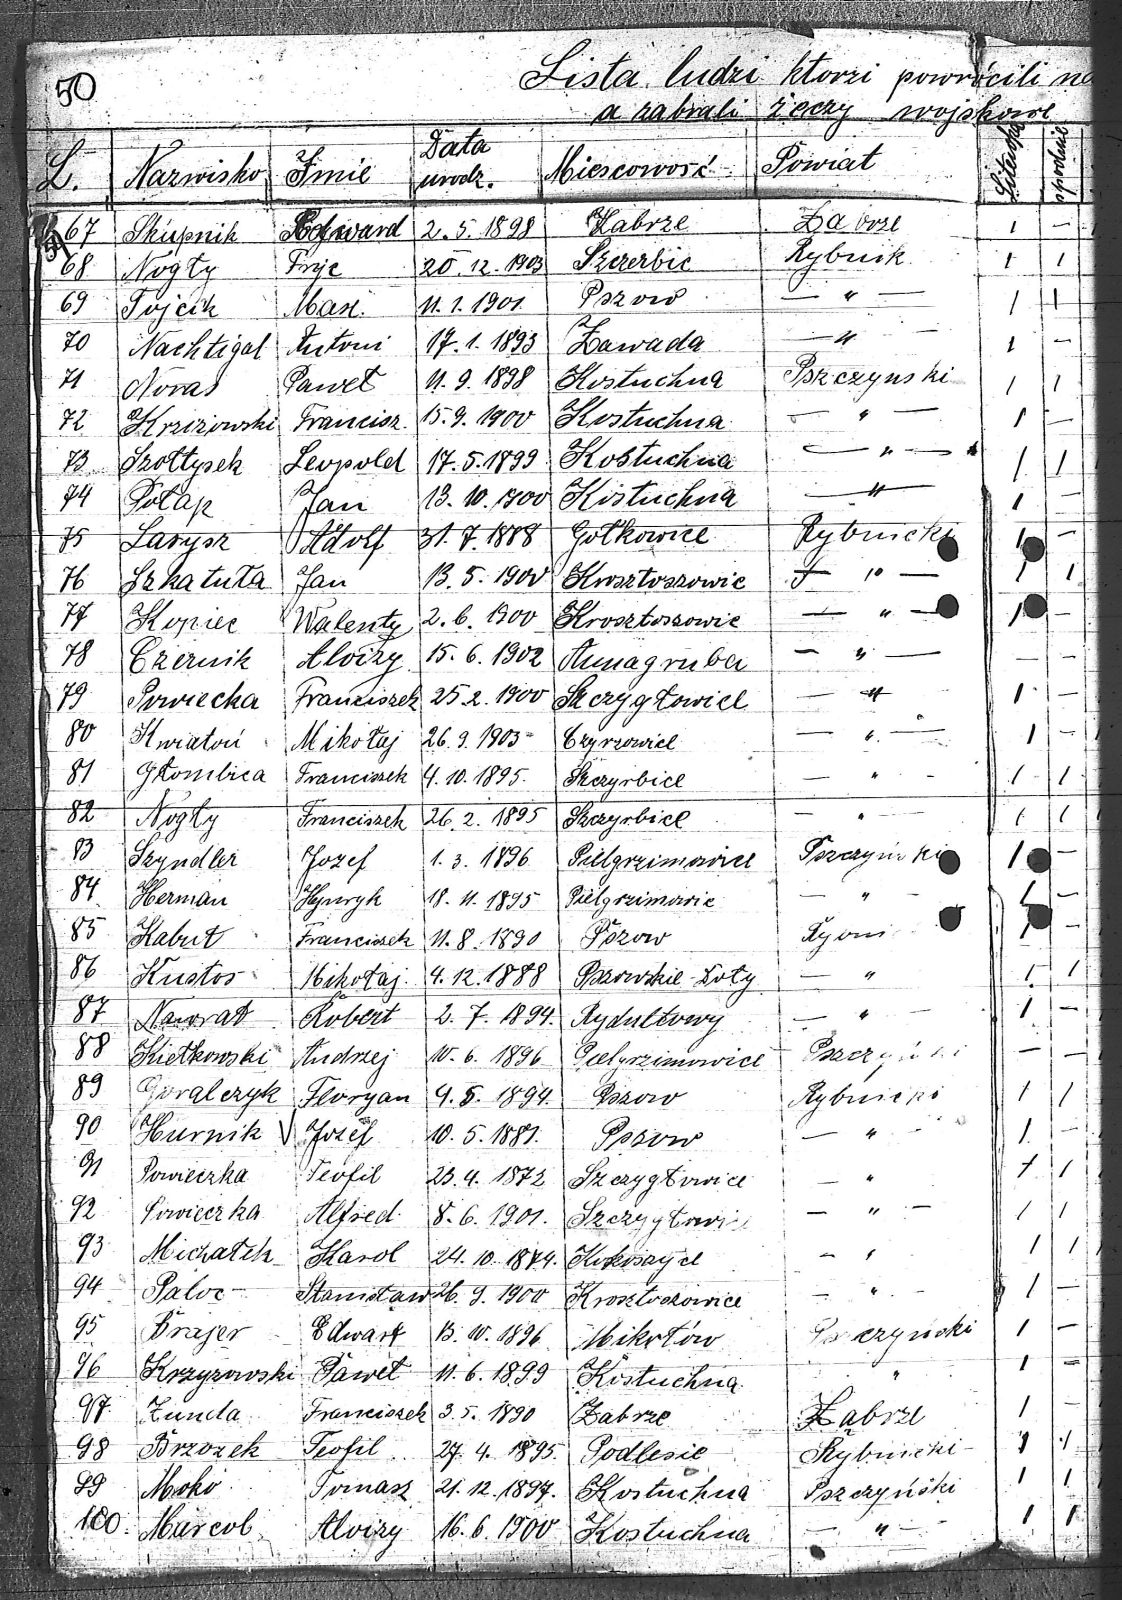 50
Lista ludzi ktorzi powrócili na
a zabrali żeczy wojskowe
L. Nazwisko Imie Data urodz. Miescowość Powiat spodnie
67 Skupnik Edward 2.5.1898 Zabrze Zabrze 1 -
68 Nogły 20.12.1903 Szczerbic Rybnik 1 1
69 Tojcik Max. 11.1.1901 Pszow — " — 1 1
70 Nachtigal Antoni 17.1.1893 Zawada — " — 1 -
71 Noras Paweł 11.9.1898 Kostuchna Pszczynski 1 1
72 Krziżowski Francisz. 15.9.1900 Kostuchna — " — 1 -
73 Szołtysek Leopold 17.5.1899 Kostuchna — " — 1 1
74 Potap Jan 13.10.1900 Kostuchna — " — 1 -
75 Larysz Adolf 31.7.1888 Gołkowice Rybnicki 1 -
76 Szkatuła Jan 13.5.1900 Krosztoszowic — " — 1 1
77 Kopiec Walenty 2.6.1900 Krosztoszowic — " — 1 -
78 Czernik Aloizy 15.6.1902 Annagruba — " — - -
79 Powiecka Franciszek 25.2.1900 Szczygłowice — " — 1 -
80 Kwiatoń Mikołaj 26.9.1903 Czyrzowice — " — 1 -
81 Głombica Franciszek 4.10.1895. Szczyrbice — " - 1 1
82 Nogły Franciszek 26.2.1895 Szczyrbice — " — 1 1
83 Szyndler Jozef 1.3.1896 Pielgrzimowice Pszczyński 1 -
84 Herman Henryk 18.11.1895 Pielgrzimowic — " 1 -
85 Kabut Franciszek 11.8.1890 Pszow 1 -
86 Kustos Mikołaj 4.12.1888 Pszowskie-Doły — " 1 1
87 Nawrat Robert 2.7.1894. Rydultowy — " 1 -
88 Kietkowski Andrzej 10.6.1896 Pielgrzimowice Pszczyński - -
89 Goralczyk Floryan 4.5.1894. Pszow Rybnicki 1 1
90 Hurnik V Jozef 10.5.1881. Pszow — " — 1 -
91 Powieczka Teofil 23.4.1872 Szczygłowice — " 1 1
92 Powieczka Alfred 8.6.1901. Szczygłowic — " — 1 1
93 Michałek Karol 24.10.1874. Kokoszyce — " 1 1
94 Paloc Stanisław 26.9.1900 Krosztoszowice — " 1 -
95 Brajer Edward 13.10.1896 Mikołów Pszczyński 1 -
96 Krzyzowski Paweł 11.6.1899 Kostuchna " 1 -
97 Zunda Franciszek 3.5.1890 Zabrze Zabrze 1 -
98 Brzozek Teofil 27.4.1895. Podlesie Rybnicki 1 1
99 Moko Tomasz 21.12.1897. Kostuchna Pszczyński 1 1
100. Marcol Aloizy 16.6.1900 Kostuchna — " — 1 1